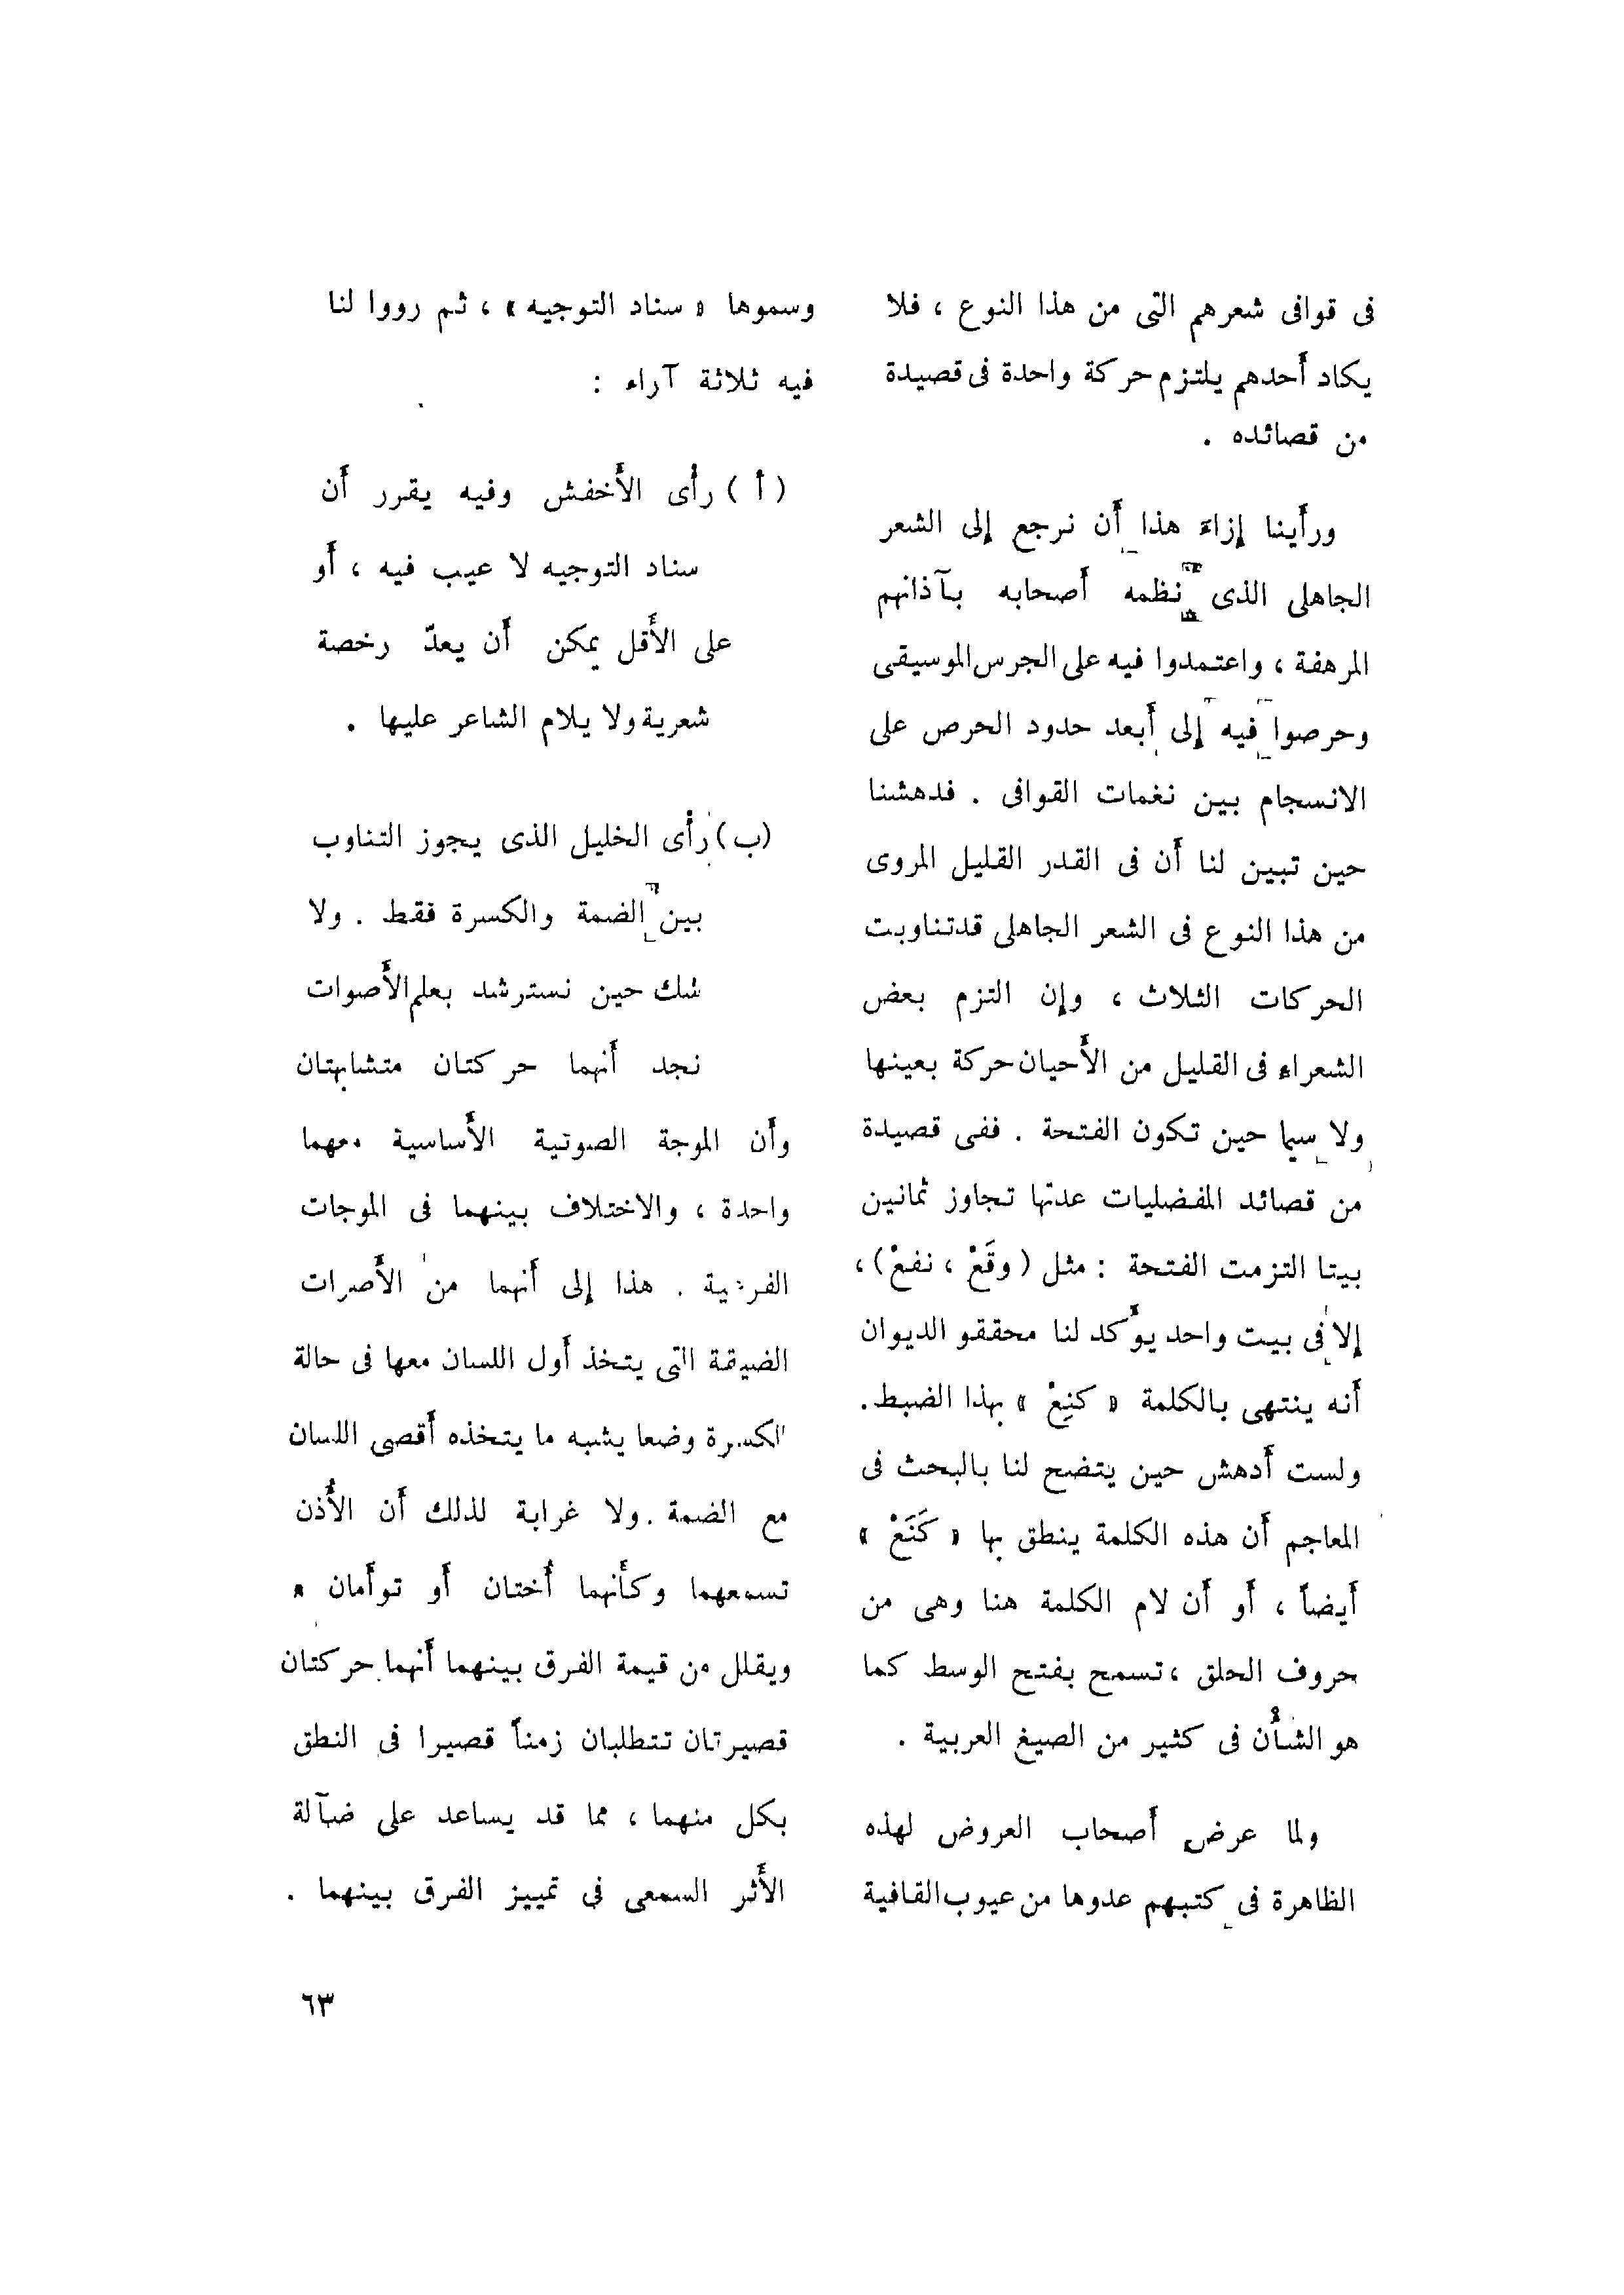 فى قوافى شعرهم التى من هذا النوع ، فلا
يكاد أحدهم يلتزم حركة واحدة فى قصيدة
من قصائده .
ورأينا إزاءَ هذا أن نرجع إلى الشعر
الجاهلى الذى نظمه أصحابه بآذانهم
المرهفة ، واعتمدوا فيه على الجرس الموسيقى
وحرصوا فيه إلى أبعد حدود الحرص على
الانسجام بين نغمات القوافى . فدهشنا
حين تبين لنا أن فى القدر القليل المروى
من هذا النوع فى الشعر الجاهلى قدتناوبت
الحركات الثلاث ، وإن التزم بعض
الشعراء فى القليل من الأحيان حركة بعينها
ولا سيما حين تكون الفتحة . ففى قصيدة
من قصائد المفضليات عدتها تجاوز ثمانين
بيتا التزمت الفتحة : مثل ( وقَعْ ، نفعْ ) ،
إلا فى بيت واحد يؤكد لنا محققو الديوان
أنه ينتهى بالكلمة « كنِعْ » بهذا الضبط .
ولست أدهش حين يتضح لنا بالبحث فى
المعاجم أن هذه الكلمة ينطق بها « كَنَعْ »
أيضاً ، أو أن لام الكلمة هنا وهى من
حروف الحلق ، تسمح بفتح الوسط كما
هو الشأن فى كثير من الصيغ العربية .
ولما عرض أصحاب العروض لهذه
الظاهرة فى كتبهم عدوها من عيوب القافية
وسموها « سناد التوجيه » ، ثم رووا لنا
فيه ثلاثة آراء :
( أ ) رأى الأخفش وفيه يقرر أن
سناد التوجيه لا عيب فيه ، أو
على الأقل يمكن أن يعدّ رخصة
شعرية ولا يلام الشاعر عليها .
(ب) رأى الخليل الذى يجوز التناوب
بين الضمة والكسرة فقط . ولا
شك حين نسترشد بعلم الأصوات
نجد أنهما حركتان متشابهتان
وأن الموجة الصوتية الأساسية معهما
واحدة ، والاختلاف بينهما فى الموجات
الفرعية . هذا إلى أنهما من الأصوات
الضيقة التى يتخذ أول اللسان معها فى حالة
الكسرة وضعا يشبه ما يتخذه أقصى اللسان
مع الضمة . ولا غرابة لذلك أن الأُذن
تسمعهما وكأنهما أُختان أو توأمان .
ويقلل من قيمة الفرق بينهما أنهما حركتان
قصيرتان تتطلبان زمناً قصيرا فى النطق
بكل منهما ، مما قد يساعد على ضآلة
الأثر السمعى فى تمييز الفرق بينهما .
٦٣